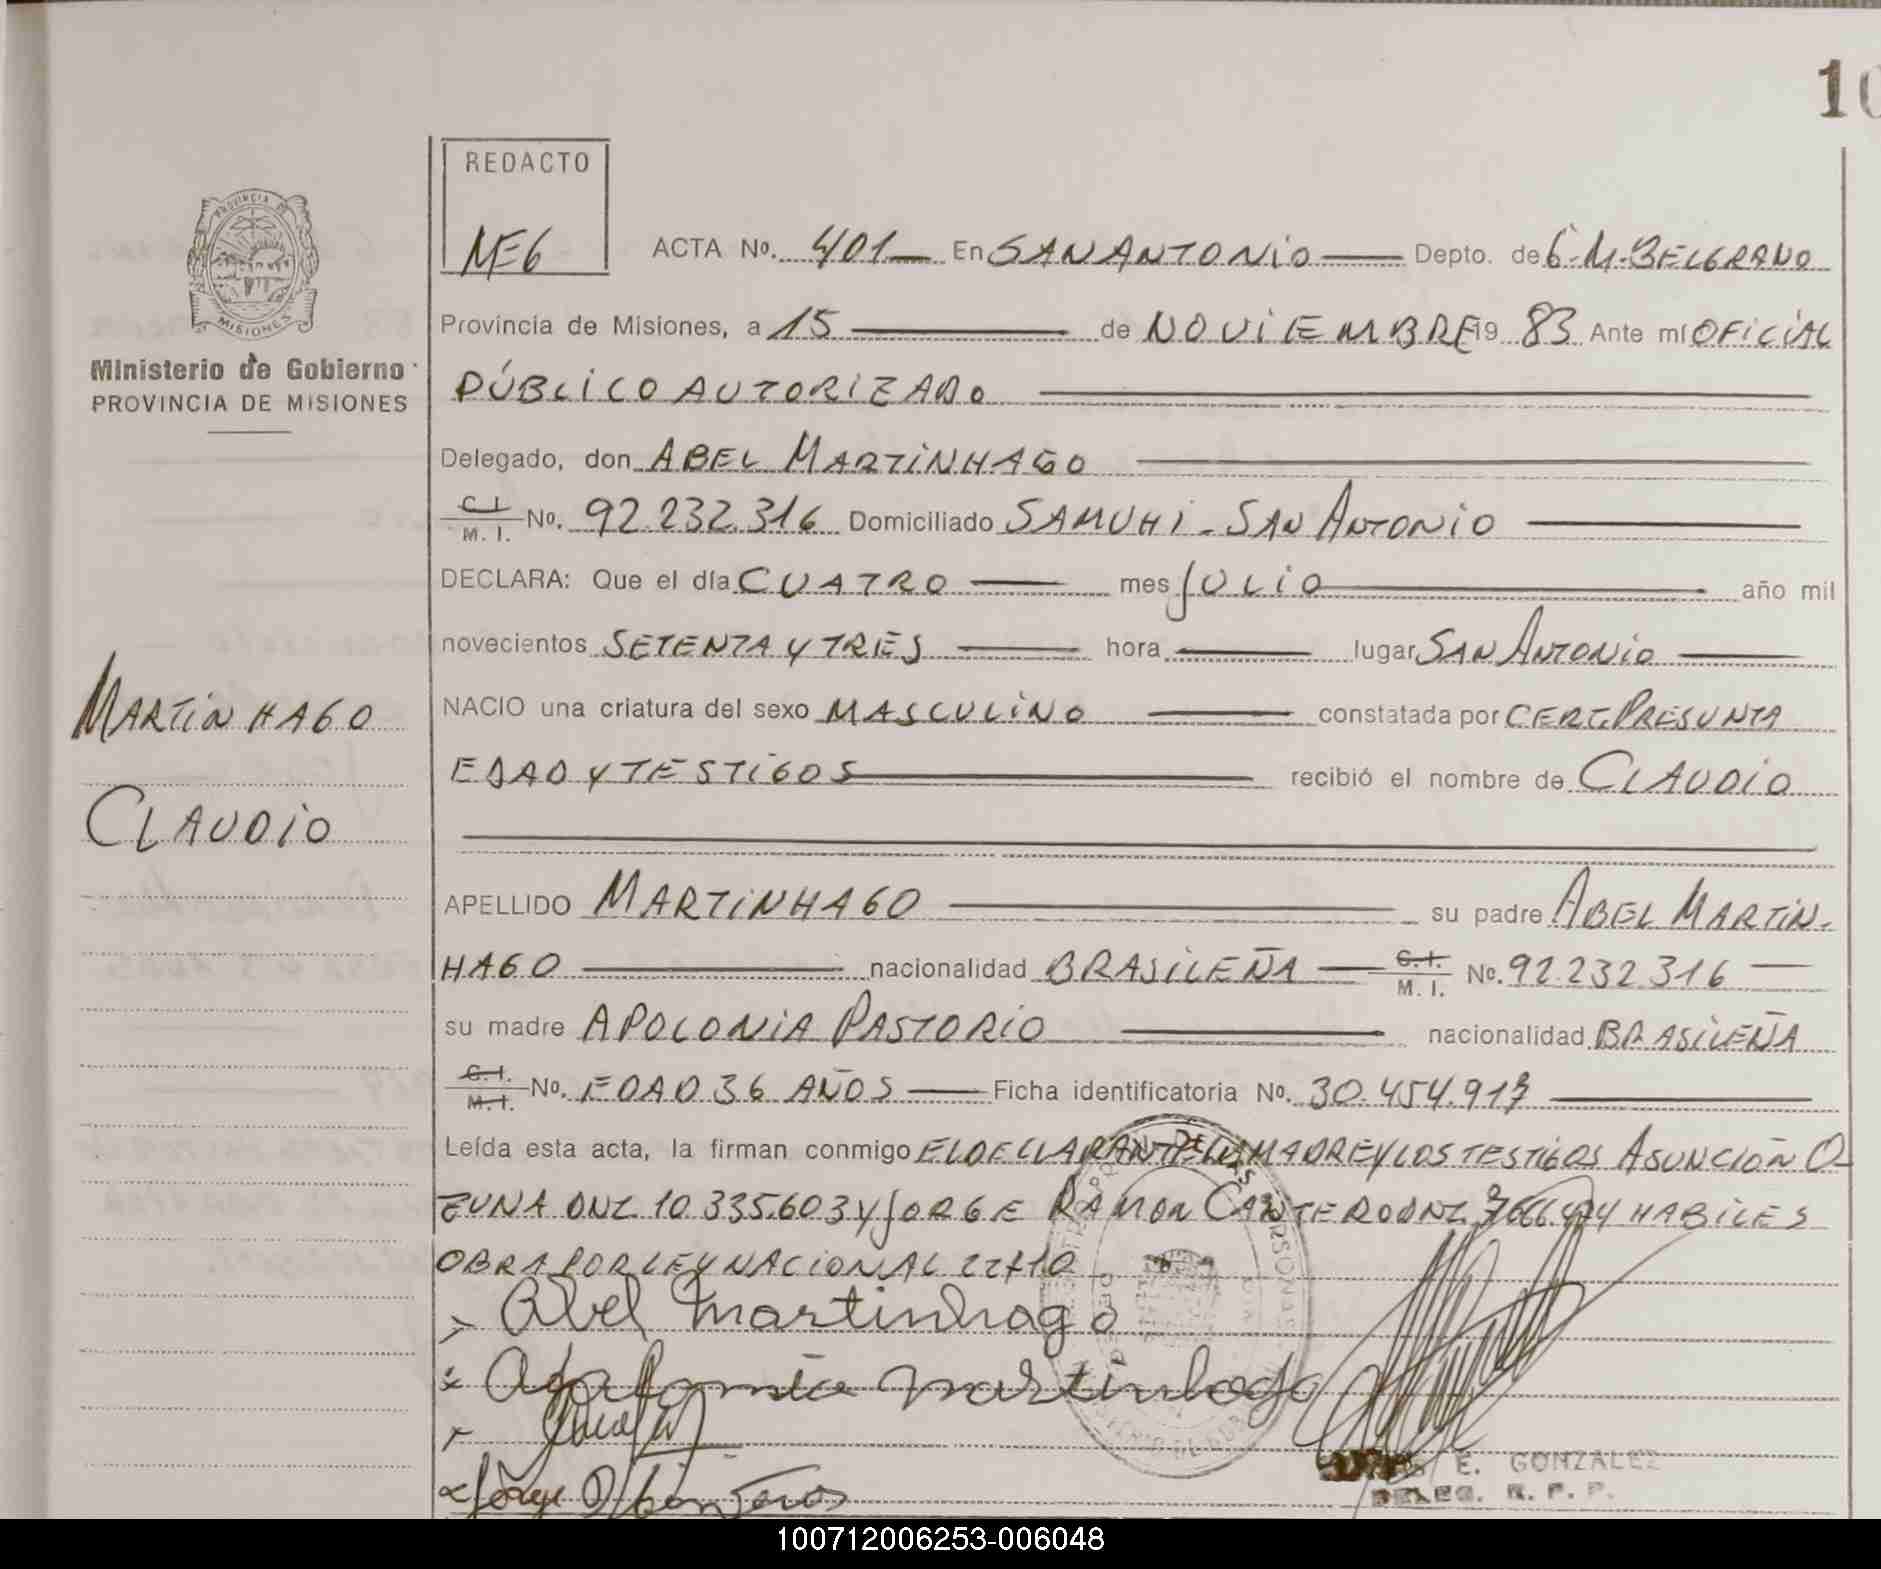 10
REDACTO
MEG
ACTA No. 401 En SAN ANTONIO Depto. de G. M. BELGRANO
Provincia de Misiones, a 15 de NOVIEMBRE 19 83 Ante mí OFICIAL
PÚBLICO AUTORIZADO
Delegado, don ABEL MARTINHAGO
C.I. M.I. No. 92.232.316 Domiciliado SAMUHI - SAN ANTONIO
DECLARA: Que el día CUATRO mes JULIO año mil
novecientos SETENTA Y TRES hora lugar SAN ANTONIO
NACIO una criatura del sexo MASCULINO constatada por CERT. PRESUNTA
EDAD Y TESTIGOS recibió el nombre de CLAUDIO
APELLIDO MARTINHAGO su padre ABEL MARTIN-
HAGO nacionalidad BRASILEÑA C.I. M.I. No. 92.232.316
su madre APOLONIA PASTORIO nacionalidad BRASILEÑA
C.I. M.I. No. EDAD 36 AÑOS Ficha identificatoria No. 30.454.917
Leída esta acta, la firman conmigo EL DECLARANTE LA MADRE Y LOS TESTIGOS ASUNCIÓN O-
ZUNA DNI. 10.335.603 Y JORGE RAMON HABILES
OBRA POR LEY NACIONAL 22410
Abel Martinhago
Apalonia Martinhago
Jorge
E. GONZALEZ
DELEG. R. P. P.
PROVINCIA DE
MISIONES
Ministerio de Gobierno
PROVINCIA DE MISIONES
MARTINHAGO
CLAUDIO
100712006253-006048